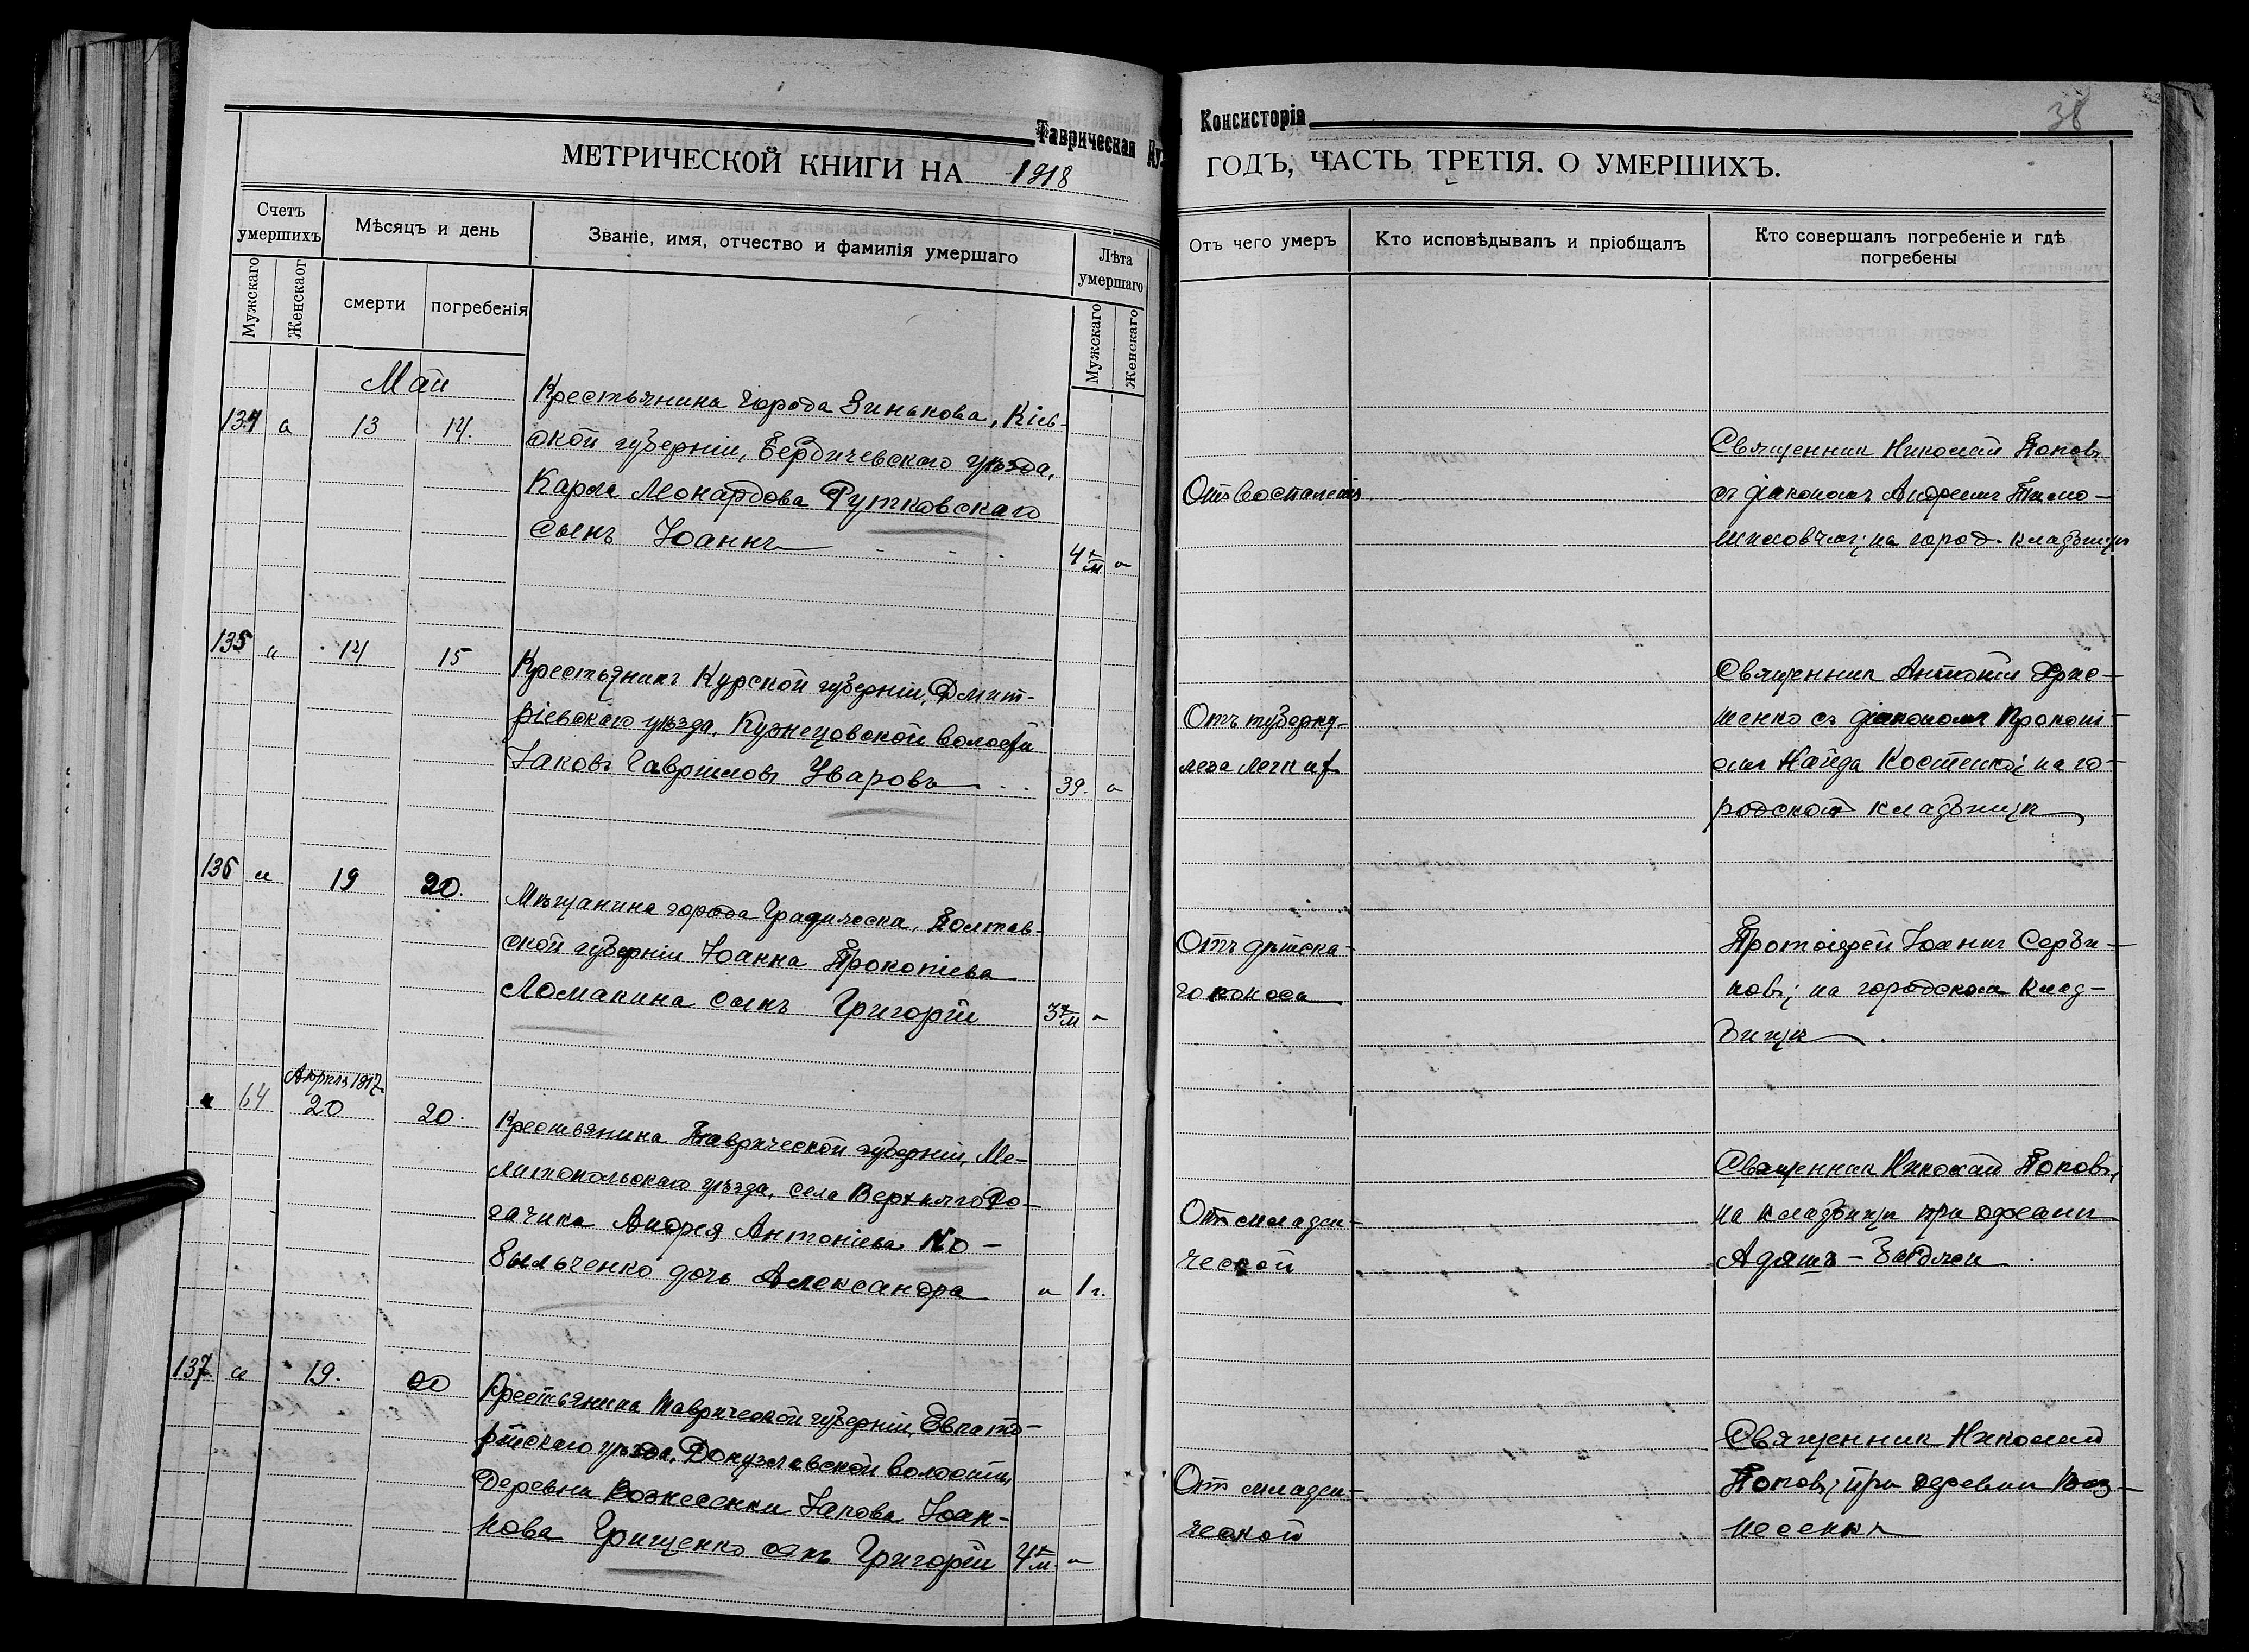 Таврическая Ду
Консисторія
38
МЕТРИЧЕСКОЙ КНИГИ НА 1918
ГОДЪ, ЧАСТЬ ТРЕТІЯ. О УМЕРШИХЪ.
Счетъ умершихъ
Мужскаго
Женскаог
Мѣсяцъ и день
смерти
погребенія
Званіе, имя, отчество и фамилія умершаго
Лѣта умершаго
Мужскаго
Женскаго
Отъ чего умеръ
Кто исповѣдывалъ и пріобщалъ
Кто совершалъ погребеніе и гдѣ
погребены
Май
134 " 13 14.
Крестьянина города Зинькова, Кіев-
ской губерніи, Бердичевскаго уѣзда,
Карла Леонардова Рутковскаго
сынъ Іоаннъ
4 м "
Отъ воспаленія
Священник Николай Поповъ
съ діакономъ Андреемъ
на город. кладбищѣ
135 " 14 15
Крестьянинъ Курской губерніи, Дмит-
ріевскаго уѣзда, Кузнецовской волости
Іаковъ Гавріиловъ Уваровъ
39. "
Отъ туберку-
леза легких
Священник Антоній
шенко съ діакономъ Прокопі-
емъ Найда Костенко; на го-
родской кладбищѣ
136 " 19 20.
Мѣщанина города Градижска, Полтав-
ской губерніи Іоанна Прокопіева
Ломакина сынъ Григорій
3 м "
Отъ дѣтска-
го поноса
Протоіерей Іоаннъ Серби-
новъ; на городском клад-
бищѣ.
Апрѣль 1917.
" 64 20 20.
Крестьянина Таврической губерніи, Ме-
литопольскаго уѣзда, села Верхняго Ро-
гачика Андрея Антоніева Ко-
быльченко дочь Александра
" 1 г.
От младен-
ческой
Священник Николай Поповъ,
на кладбищѣ при
137 " 19. 20
Крестьянина Таврической губерніи, Евпато-
рійскаго уѣзда, Донузлавской волости,
деревни Вознесенки Іакова Іоан-
нова Грищенко сынъ Григорій
4 м. "
От младен-
ческой
Священник Николай
Поповъ; при деревни Воз-
несенкѣ